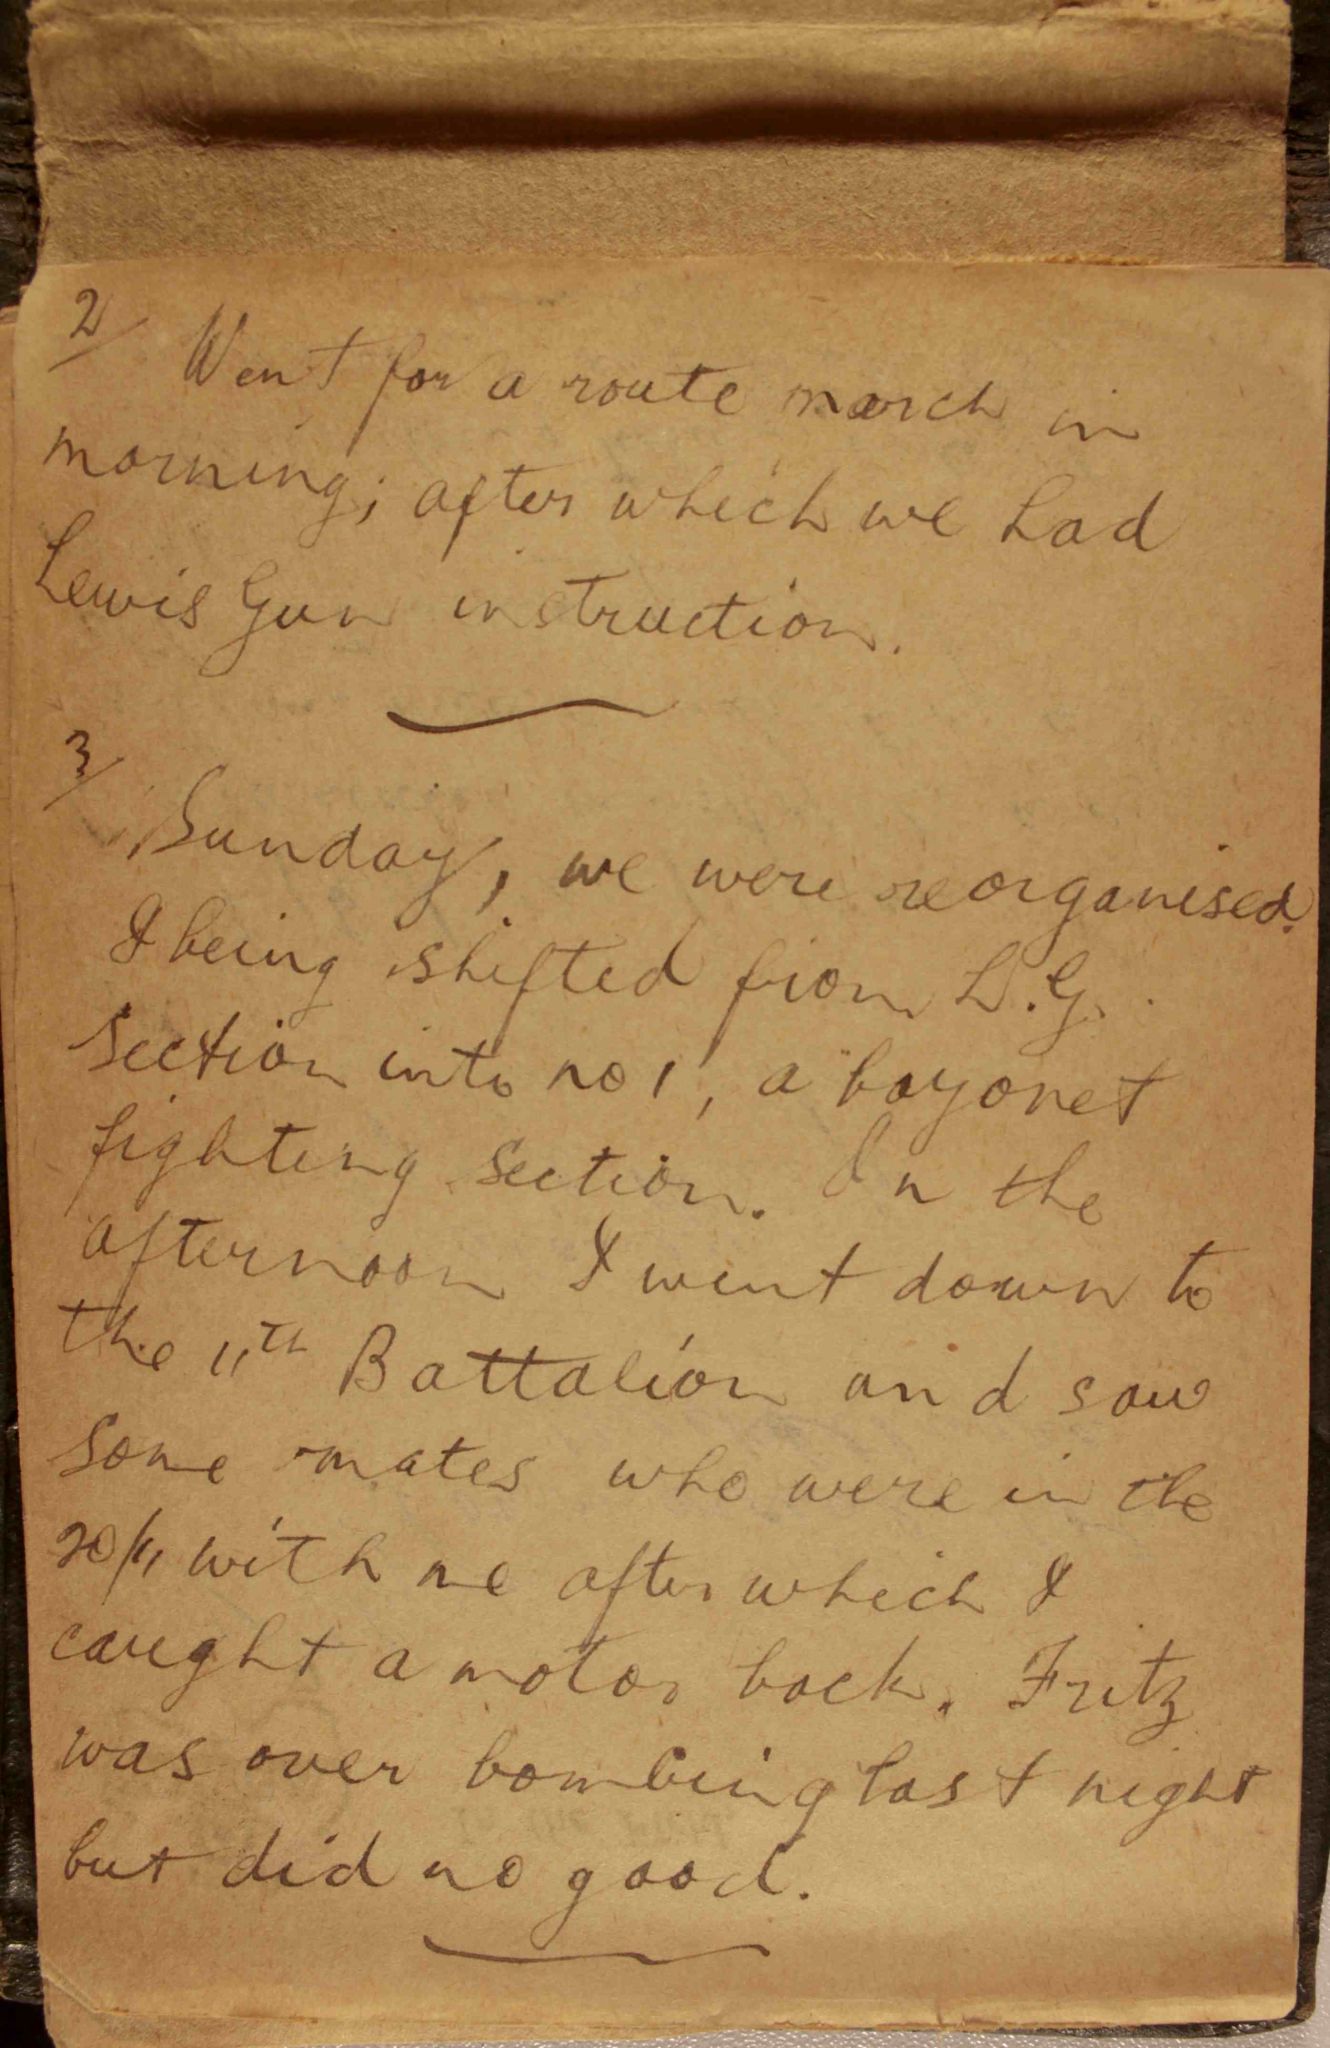 2/ Went for a route march in
morning; after which we had
Lewis Gun instruction.
3/
Sunday, we were reorganised.
I being shifted from L.G.
section into no 1, a bayonet
fighting section. In the
afternoon I went down to
the 11th Battalion and saw
some mates who were in the
20/11 with me after which I
caught a motor back. Fritz
was over bombing last night
but did no good.